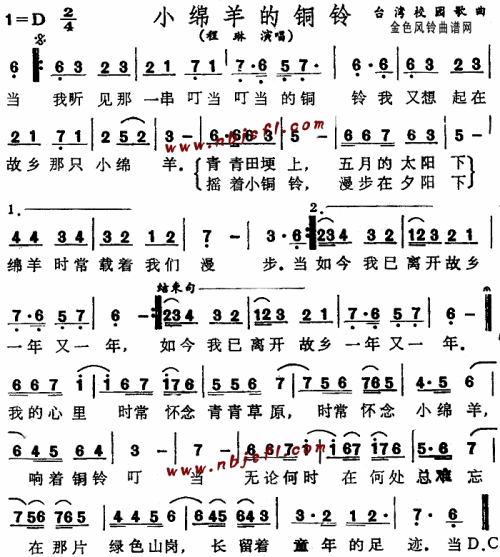 1=D 2/4 小绵羊的铜铃 台湾校园歌曲
(程琳 演唱) 金色风铃曲谱网
6 | 6 3 2 3 | 2 1 7 1 | 7·6 5 7 | 6 6 3 | 2 3
当 我听见那一串叮当叮当的铜 铃我又想起在
2 1 7 1 | 2 5 2 | 3 - | 6·6 6 3 | 5 - | 6 6 7 6 3 | 5 -
故乡那只小绵 羊。 青青田埂上, 五月的太阳下
摇着小铜铃, 漫步在夕阳下
www.nbjsfl.com
1. 2.
4 4 3 4 | 3 2 1 2 | 7 - | 3·6 :| 2 3 4 3 2 | 1 2 3 2 1 |
绵羊时常载着我们漫 步。当如今我已离开故乡
结束句
7·6 5 7 | 6 - :| 2 3 4 3 2 | 1 2 3 2 1 | 7·6 5 7 | 6 -
一年又一年, 如今我已离开故乡一年又一年。
6 6 7 i | i i 6 7 i 7 6 | 5 5 6 7 | 7 5 6 7 6 5 | 4·5 6
我的心里 时常怀念青青草原, 时常怀念小绵羊,
6 4 5 | 3 - | 7 - | 6 6 6 7 | i i 6 7 i 7 6 | 5·6 7
响着铜铃叮 当 无论何时在何处总难忘
www.nbjsfl.com
7 5 6 7 6 5 | 4 4 5 6 | 6 4 5 6 4 3 | 3·2 1 2 | 7 - | 3·6
在那片绿色山岗, 长留着童年的足迹。当D.C